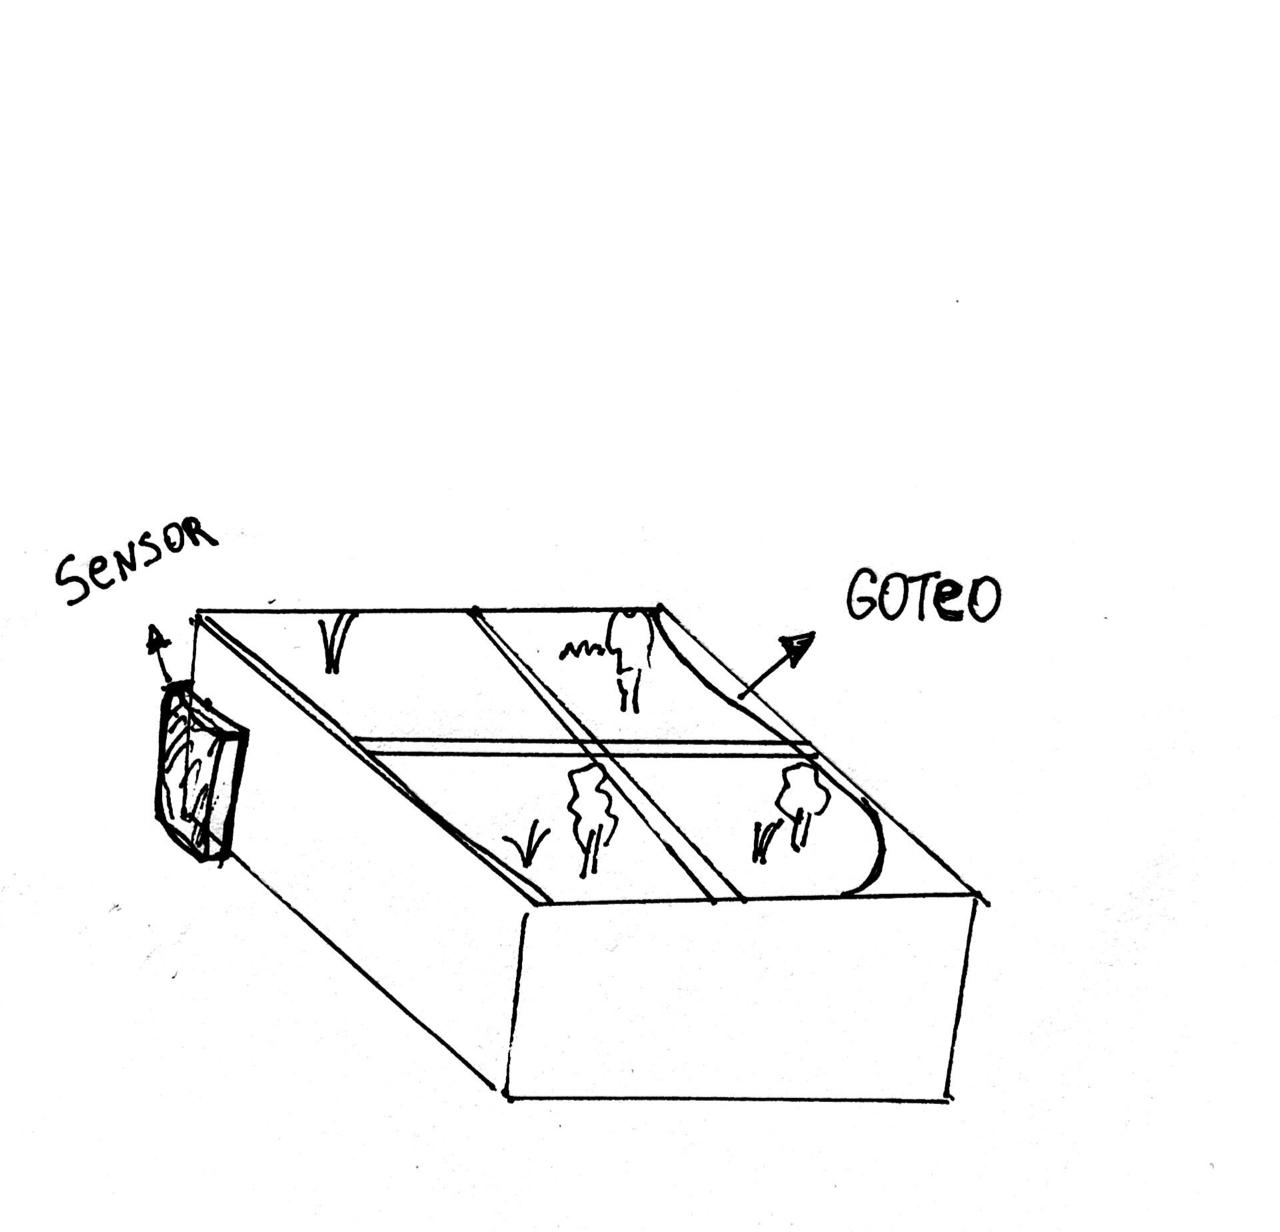 SeNSOR
GOTeO